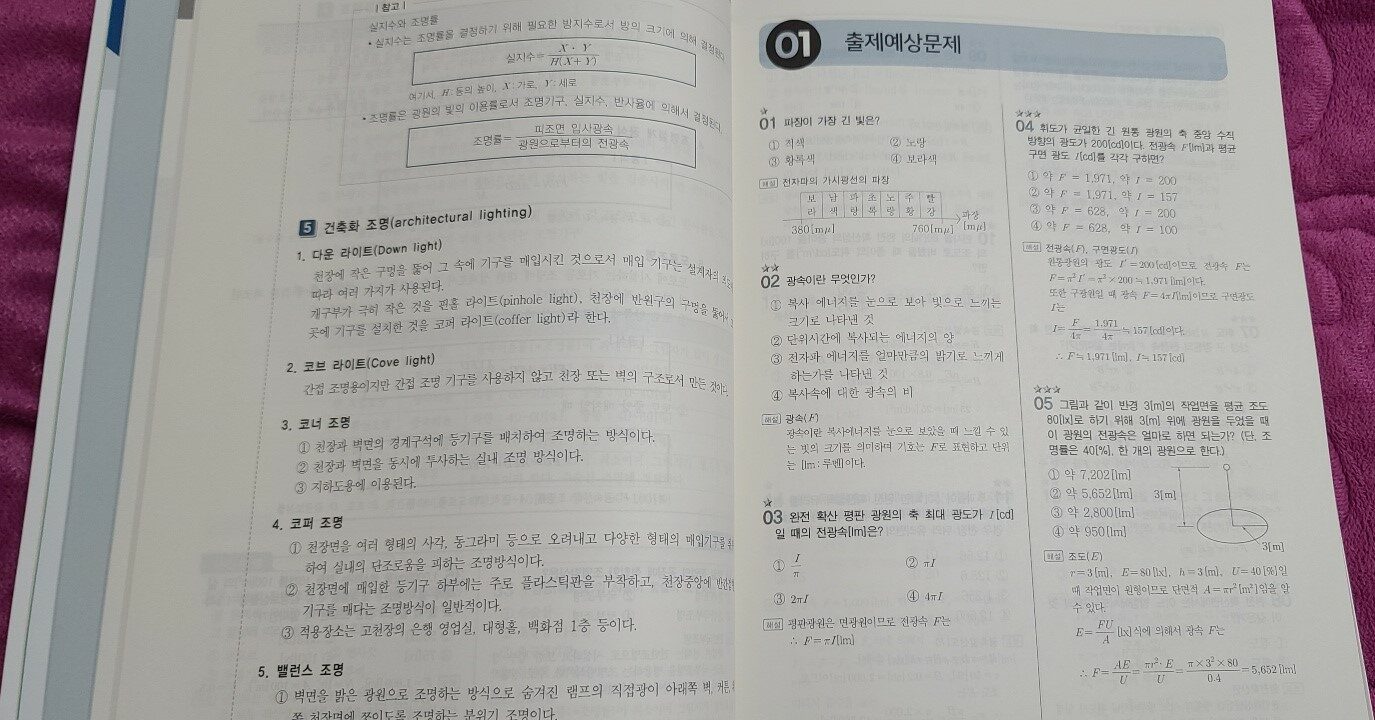 | 참고 |
실지수와 조명률
• 실지수는 조명률을 결정하기 위해 필요한 방지수로서 방의 크기에 의해 결정된다
실지수= X · Y / H(X+Y)
여기서, H: 등의 높이, X: 가로, Y: 세로
• 조명률은 광원의 빛의 이용률로서 조명기구, 실지수, 반사율에 의해서 결정된다.
조명률= 피조면 입사광속 / 광원으로부터의 전광속
5 건축화 조명(architectural lighting)
1. 다운 라이트(Down light)
천장에 작은 구멍을 뚫어 그 속에 기구를 매입시킨 것으로서 매입 기구는 설계자의
따라 여러 가지가 사용된다.
개구부가 극히 작은 것을 핀홀 라이트(pinhole light), 천장에 반원구의 구멍을 뚫어
곳에 기구를 설치한 것을 코퍼 라이트(coffer light)라 한다.
2. 코브 라이트(Cove light)
간접 조명용이지만 간접 조명 기구를 사용하지 않고 천장 또는 벽의 구조로서 만든 것이다
3. 코너 조명
① 천장과 벽면의 경계구석에 등기구를 배치하여 조명하는 방식이다.
② 천장과 벽면을 동시에 투사하는 실내 조명 방식이다.
③ 지하도용에 이용된다.
4. 코퍼 조명
① 천장면을 여러 형태의 사각, 동그라미 등으로 오려내고 다양한 형태의 매입기구를
하여 실내의 단조로움을 피하는 조명방식이다.
② 천장면에 매입한 등기구 하부에는 주로 플라스틱판을 부착하고, 천장중앙에
기구를 매다는 조명방식이 일반적이다.
③ 적용장소는 고천장의 은행 영업실, 대형홀, 백화점 1층 등이다.
5. 밸런스 조명
① 벽면을 밝은 광원으로 조명하는 방식으로 숨겨진 램프의 직접광이 아래쪽 벽, 커튼,
쪽 천장면에 쪼이도록 조명하는 분위기 조명이다.
01 출제예상문제
★
01 파장이 가장 긴 빛은?
① 적색 ② 노랑
③ 황록색 ④ 보라색
해설 전자파의 가시광선의 파장
보 남 파 초 노 주 빨
라 색 랑 록 랑 황 강
파장
380[mμ] 760[mμ] [mμ]
★★
02 광속이란 무엇인가?
① 복사 에너지를 눈으로 보아 빛으로 느끼는
크기로 나타낸 것
② 단위시간에 복사되는 에너지의 양
③ 전자파 에너지를 얼마만큼의 밝기로 느끼게
하는가를 나타낸 것
④ 복사속에 대한 광속의 비
해설 광속(F)
광속이란 복사에너지를 눈으로 보았을 때 느낄 수 있
는 빛의 크기를 의미하며 기호는 F로 표현하고 단위
는 [lm : 루멘]이다.
★
03 완전 확산 평판 광원의 축 최대 광도가 I[cd]
일 때의 전광속[lm]은?
① I/π ② πI
③ 2πI ④ 4πI
해설 평판광원은 면광원이므로 전광속 F는
∴ F=πI[lm]
★★★
04 휘도가 균일한 긴 원통 광원의 축 중앙 수직
방향의 광도가 200[cd]이다. 전광속 F[lm]과 평균
구면 광도 I[cd]를 각각 구하면?
① 약 F = 1,971, 약 I = 200
② 약 F = 1,971, 약 I = 157
③ 약 F = 628, 약 I = 200
④ 약 F = 628, 약 I = 100
해설 전광속(F), 구면광도(I)
원통광원의 광도 I′=200[cd]이므로 전광속 F는
F=π²I′=π²×200≒1,971[lm]이다.
또한 구광원일 때 광속 F=4πI[lm]이므로 구면광도
I는
I= F/4π = 1,971/4π ≒157[cd]이다.
∴ F≒1,971[lm], I≒157[cd]
★★★
05 그림과 같이 반경 3[m]의 작업면을 평균 조도
80[lx]로 하기 위해 3[m] 위에 광원을 두었을 때
이 광원의 전광속은 얼마로 하면 되는가? (단, 조
명률은 40[%], 한 개의 광원으로 한다.)
① 약 7,202[lm]
② 약 5,652[lm]
③ 약 2,800[lm]
④ 약 950[lm]
3[m]
3[m]
해설 조도(E)
r=3[m], E=80[lx], h=3[m], U=40[%]일
때 작업면이 원형이므로 단면적 A=πr²[m²]임을 알
수 있다.
E= FU/A [lx]식에 의해서 광속 F는
∴ F= AE/U = πr²·E/U = π×3²×80/0.4 =5,652[lm]